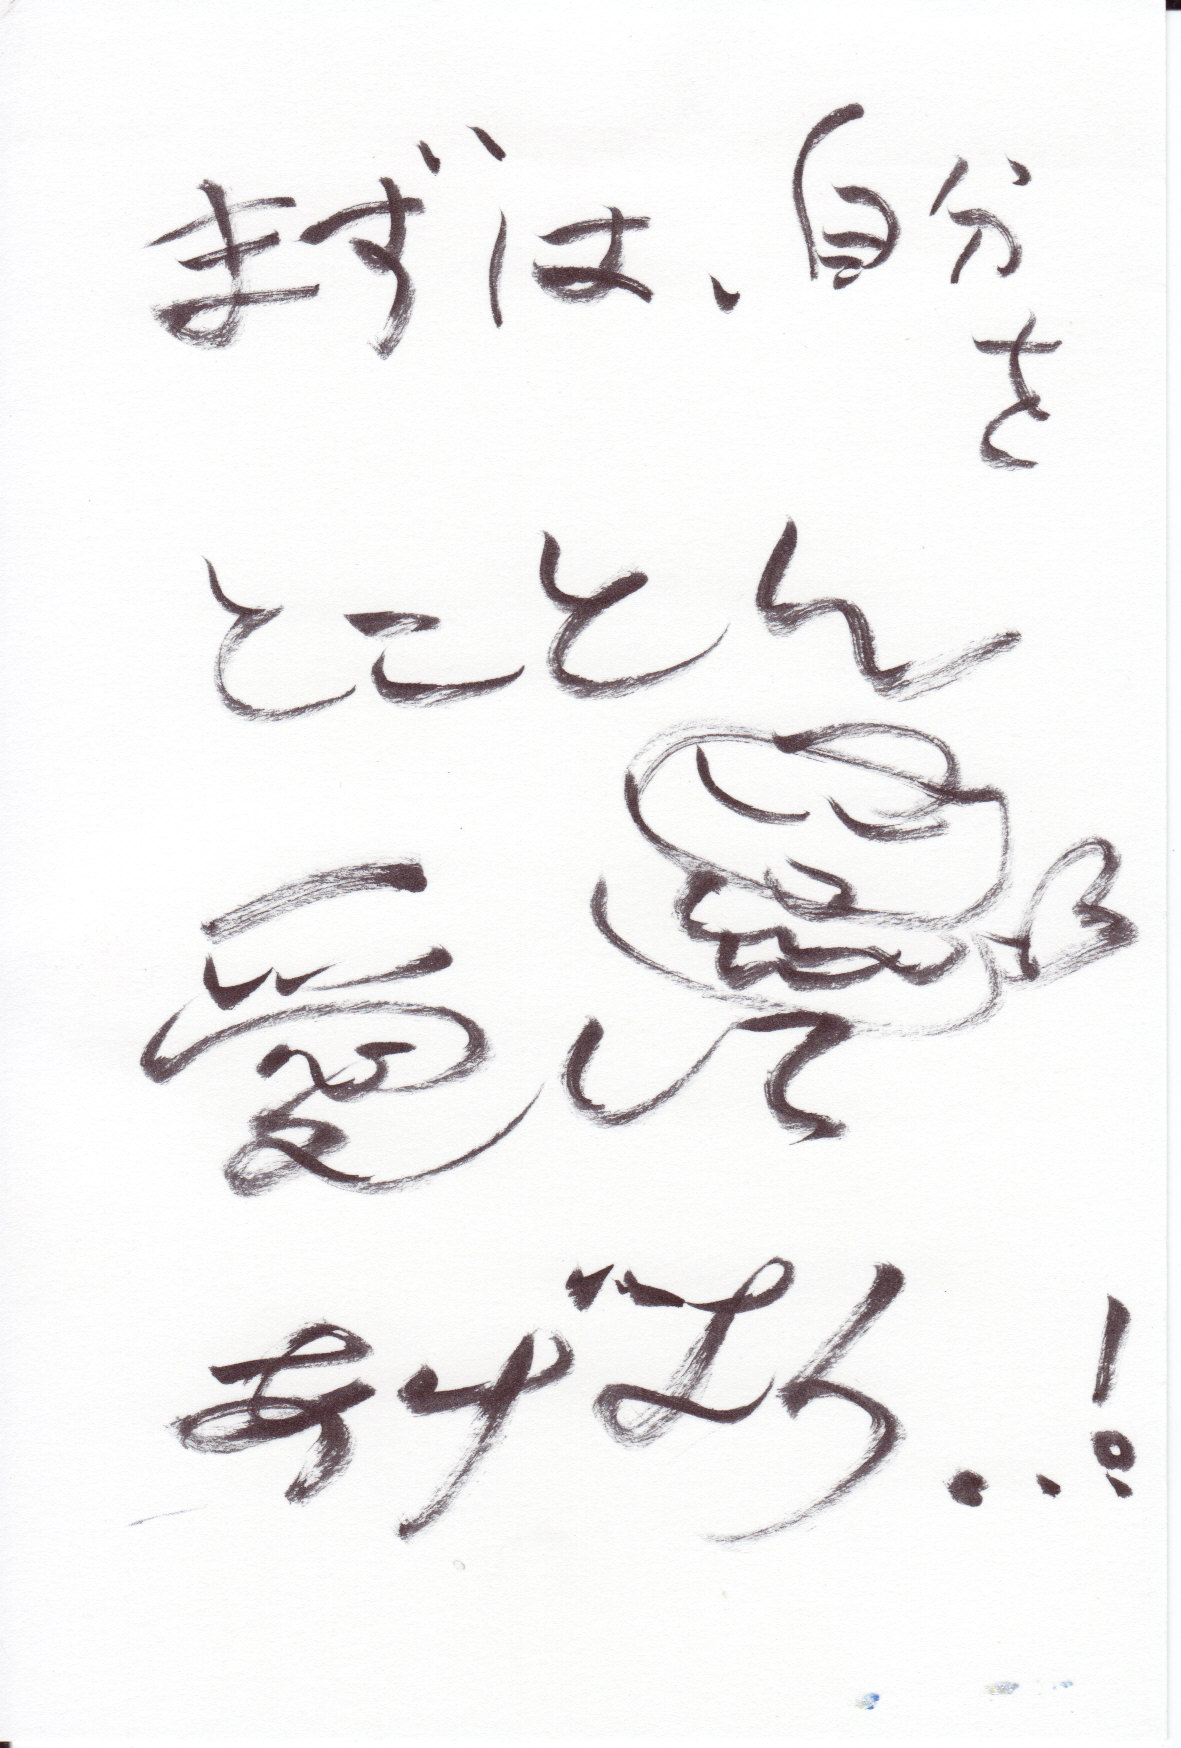 まずは、自分を
とことん
愛して
あげよう..!